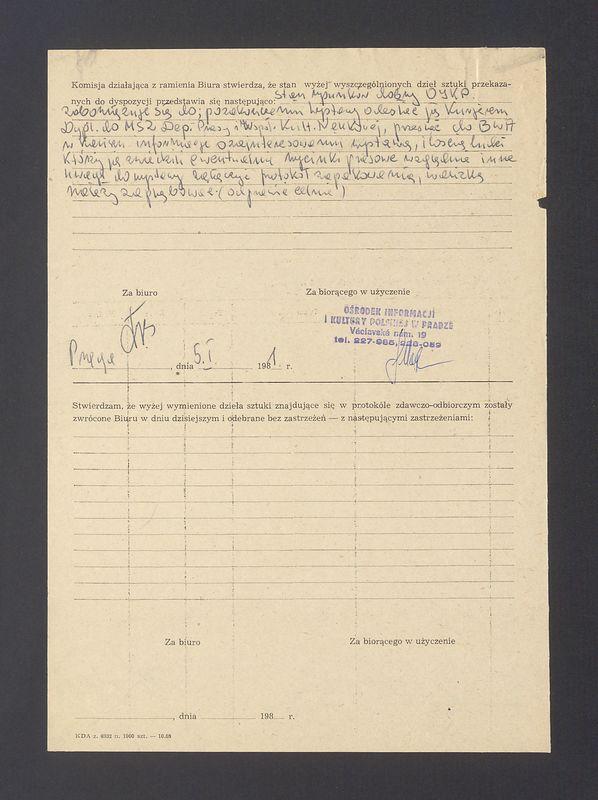 Komisja działająca z ramienia Biura stwierdza, że stan wyżej wyszczególnionych dzieł sztuki przekaza-
nych do dyspozycji przedstawia się następująco: Stan rysunków dobry OIKP
zobowiązuje się do; po zakończeniu wystawy odesłać ją Kurierem
Dypl. do MSZ Dep. Prasy i Współ. Kult. Naukowej, przesłać do BWA
w informacje o zainteresowaniu wystawą, ilością ludzi
którzy ją zwiedzili ewentualny wycinki prasowe względnie inne
uwagi do wystawy załączyć protokół zapakowania,
należy (odpowiedzialnie)
Za biuro
Za biorącego w użyczenie
OŚRODEK INFORMACJI
I KULTURY POLSKIEJ W PRADZE
Václavské nám. 19
tel. 227-985, 228-059
Praga, dnia 5.I 1981 r.
Stwierdzam, że wyżej wymienione dzieła sztuki znajdujące się w protokóle zdawczo-odbiorczym zostały
zwrócone Biuru w dniu dzisiejszym i odebrane bez zastrzeżeń — z następującymi zastrzeżeniami:
Za biuro
Za biorącego w użyczenie
, dnia 198 r.
KDA z. 6332 n. 1000 szt. — 10.80